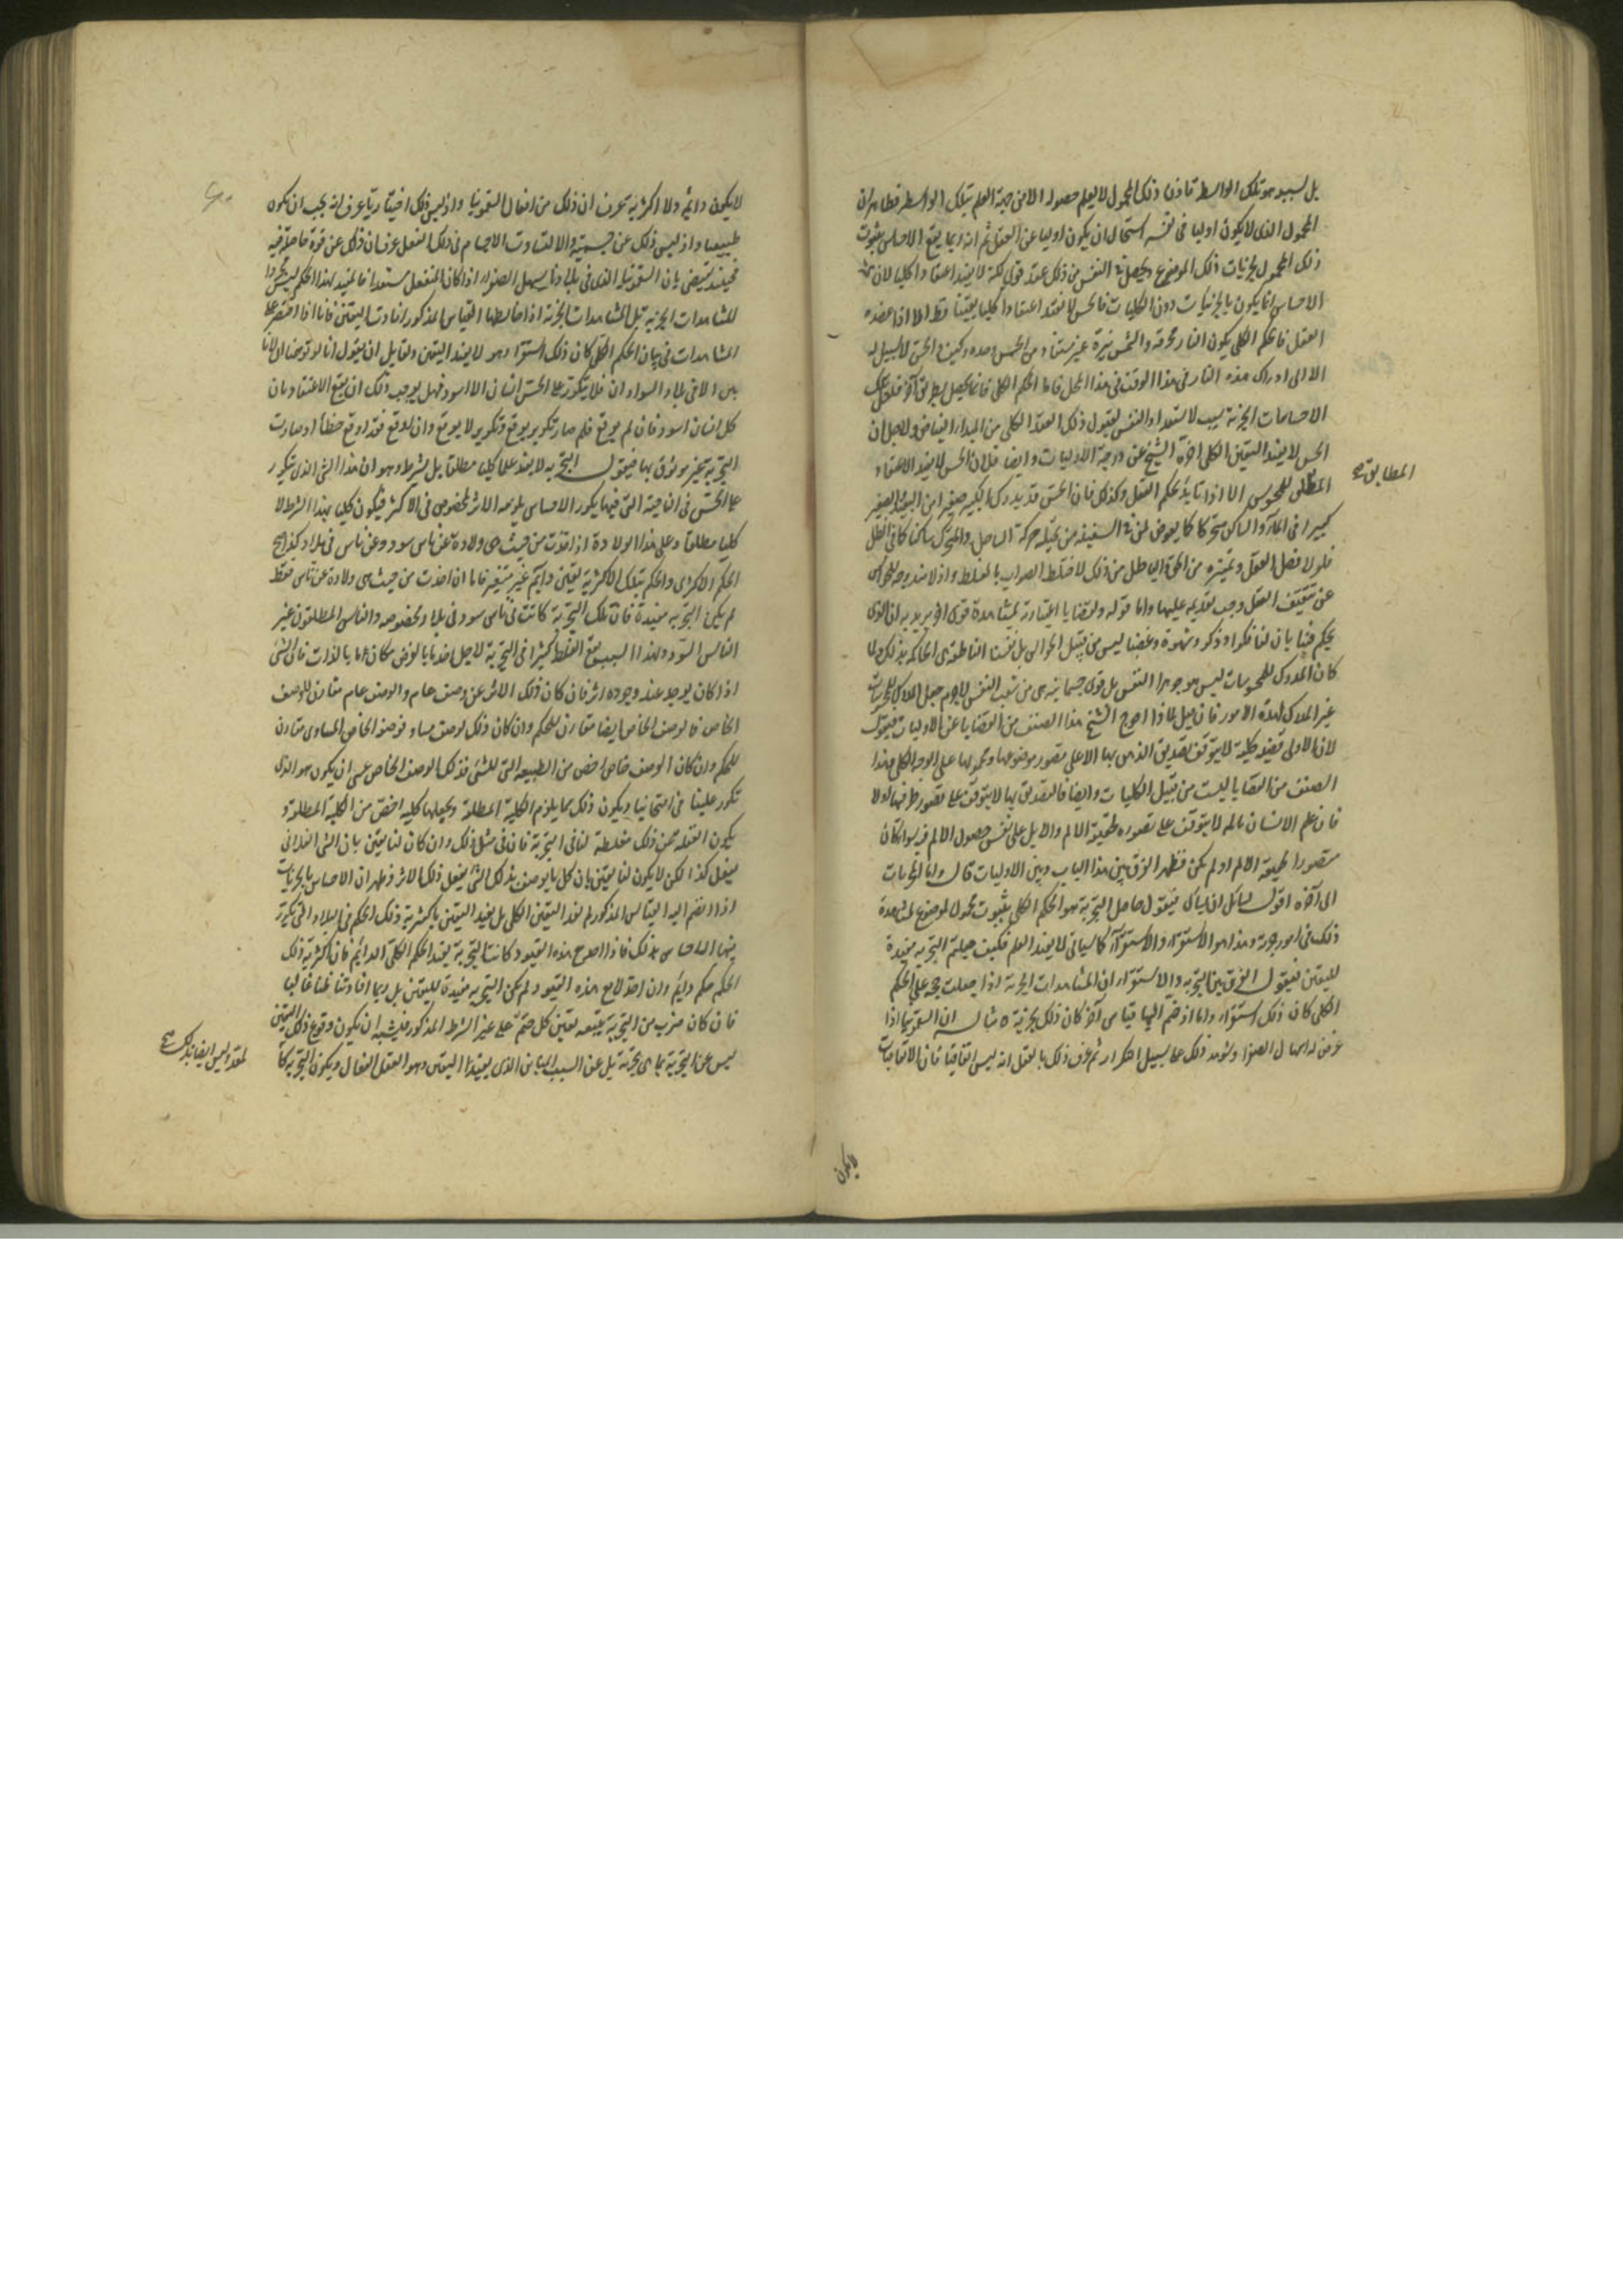 بل لسبب هو تلك الواسطة فاذن ذلك المحمول لا يعلم حصوله الا من جهة العلم بتلك الواسطة فظاهر ان
المحمول الذى لا يكون اوليا فى نفسه استحال ان يكون اوليا عن العقل ثم انه ربما يقع الاحساس بثبوت
ذلك المحمول لجزئيات ذلك الموضوع ويحصل فى النفس من ذلك عقد قوى لكنه لا يفيد اعتقادا كليا لان
الاحساس انما يكون بالجزئيات دون الكليات فالحس لا يفيد اعتقادا كليا يقينا قط الا اذا عضده
العقل فالحكم الكلى بكون النار محرقة والشمس نيرة غير مستفاد من الحس وحده وكيف والحس لا سبيل له
الا الى ادراك هذه النار فى هذا الوقت فى هذا المحل فاما الحكم الكلى فانما يحصل بطريق آخر فلعل تلك
الاحساسات الجزئية سبب لاستعداد النفس لقبول ذلك العقد الكلى من المبداء الفياض ولاجل ان
الحس لا يفيد اليقين الكلى اخره الشيخ عن درجة الاوليات وايضا فلان الحس لا يفيد الاعتقاد
المطابق
المطلق للمحسوس الا اذا تأيد بحكم العقل وكذلك فان الحس قد يدرك الكبير صغيرا من البعيد والصغير
كبيرا فى الماء والساكن متحركا كما يعرض لمن فى السفينة من تخيله حركة الساحل والمتحرك ساكنا كما فى الظل
فلو لا فصل العقل وتميزه من الحق الباطل من ذلك لاختلط الصواب بالغلط واذ لا مندوحة للحواس
عن تثقيف العقل وجب تقديمه عليها واما قوله وقضايا اعتبارية بمشاهدة قوى اخر يريد به ان الذى
يحكم فينا بان لنا فكرا وذكرا وشهوة وغضبا ليس من قبيل الحواس بل نفسنا الناطقة هى الحاكمة بذلك ولما
كان المدرك للمحسوسات ليس هو جوهر النفس بل قوى جسمانية هى من شعب النفس لا جرم جعل المدرك للمحسوسات
غير المدرك لهذه الامور فان قيل لماذا اخرج الشيخ هذا الصنف من القضايا عن الاوليات فنقول
لان الاولى قضية كلية لا يتوقف تصديق الذهن بها الا على تصور موضوعها ومحمولها على الوجه الكلى وهذا
الصنف من القضايا ليست من قبيل الكليات وايضا فالتصديق بها لا يتوقف على تصور طرفيها اولا
فان علم الانسان بالمه لا يتوقف على تصوره لحقيقة الالم والا بل على نفس حصول الالم فيه سوا كان
متصورا لحقيقة الالم او لم يكن فظهر الفرق بين هذا الباب وبين الاوليات قال واما المجربات
الى آخره اقول لسائل ان يسأل فيقول حاصل التجربة هو الحكم الكلى بثبوت محمول لموضوع لمشاهدة
ذلك فى امور جزئية وهذا هو الاستقراء والاستقراء كما سيأتى لا يفيد العلم فكيف جعلتم التجربة مفيدة
لليقين فنقول الفرق بين التجربة والاستقراء ان المشاهدات الجزئية اذا جعلت حجة على الحكم
الكلى كان ذلك استقراء واما اذا ضم اليها قياس آخر كان ذلك تجربة مثاله ان السقمونيا اذا
عرض له اسهال الصفرا وشوهد ذلك على سبيل التكرار ثم عرف ذلك بالعقل انه ليس اتفاقيا فان الاتفاقيات
لا يكون
لا يكون دائمة ولا اكثرية تعرف ان ذلك من افعال السقمونيا واذ ليس ذلك اختياريا عرف انه يجب ان يكون
طبيعيا واذ ليس ذلك عن جسميته والا لتساوت الاجسام فى ذلك الفعل عرف ان ذلك عن قوة حاصلة فيه
فحينئذ نقضى بان السقمونيا الذى فى بلادنا يسهل الصفراء اذا كان المنفعل مستعدا فالمفيد لهذا الحكم ليس مجردا
للمشاهدات الجزئية بل المشاهدات الجزئية اذا خالطها القياس المذكور افادت اليقين فاما اذا اقتصر على
المشاهدات فى بيان الحكم الكلى كان ذلك استقراء وهو لا يفيد اليقين ولقايل ان يقول انا لو توهمنا ان لا ناس
الا فى بلاد السودان فلا يتكرر على الحس انسان الا اسود فهل يوجب ذلك ان يقع الاعتقاد بان
كل انسان اسود فان لم يوقع فلم صار تكرير يوقع وتكرير لا يوقع وان اوقع فقد اوقع خطأ وصارت
التجربة غير موثوق بها فيقول التجربة لا يفيد علما كليا مطلقا بل بشرط وهو ان هذا الشى الذى تكرر
على الحس فى الناحية التى فيها تكرر الاحساس يلزمه الاثر المخصوص فى الاكثر فيكون كليا بهذا الشرط لا
كليا مطلقا وعلى هذا الولادة اذا اخذت من حيث هى ولادة عن ناس سود وعن ناس فى بلاد كذا صح
الحكم الاكثرى والحكم بتلك الاكثرية يقينى دائم غير متغير فاما ان اخذت من حيث هى ولادة عن ناس فقط
لم يكن التجربة مفيدة فان تلك التجربة كانت فى ناس سود وفى بلاد مخصوصه والناس المطلقون غير
الناس السود ولهذا السبب يقع الغلط كثيرا فى التجربة لاجل اخذ ما بالعرض مكان ما بالذات فان الشى
اذا كان يوجد عند وجوده اثر فان كان ذلك الاثر عن وصف عام والوصف عام مقارن للوصف
الخاص فالوصف الخاص ايضا مقارن للحكم وان كان ذلك لوصف مساو فوصفه الخاص المساوى مقارن
للحكم وان كان الوصف خاص اخص من الطبيعة التى للشى فذلك الوصف الخاص عسى ان يكون هو الذى
تكرر علينا فى امتحاننا ويكون ذلك مما يلزم الكلية المطلقة ويجعلها كلية اخص من الكلية المطلقة و
يكون الغفلة عن ذلك مغلطة لنا فى التجربة فان فى مثل ذلك وان كان لنا يقين بان الشى الفلانى
يفعل كذا لكن لا يكون لنا يقين بان كل ما يوصف بذلك الشى يفعل ذلك الاثر فظهر ان الاحساس بالجزئيات
اذا انضم اليه القياس المذكور لم يفد اليقين الكلى بل يفيد اليقين باكثرية ذلك الحكم فى البلاد التى تكرر
فيها الاحساس بذلك فاذا صح هذه القيود كانت التجربة يفيد الحكم الكلى الدائم فان اكثرية ذلك
الحكم حكم دايم وان اخذ لا مع هذه القيود لم يكن التجربة مفيدة لليقين بل ربما افادتنا ظنا غالبا
فان كان ضرب من التجربة يتبعه يقين كلى حتم على غير الشرط المذكور فليشبه ان يكون وقوع ذلك اليقين
ليس عن التجربة بما هى تجربة بل عن السبب المباين الذى يفيد اليقين وهو العقل الفعال ويكون التجربة كا
لمعد وليس ايضا بذلك